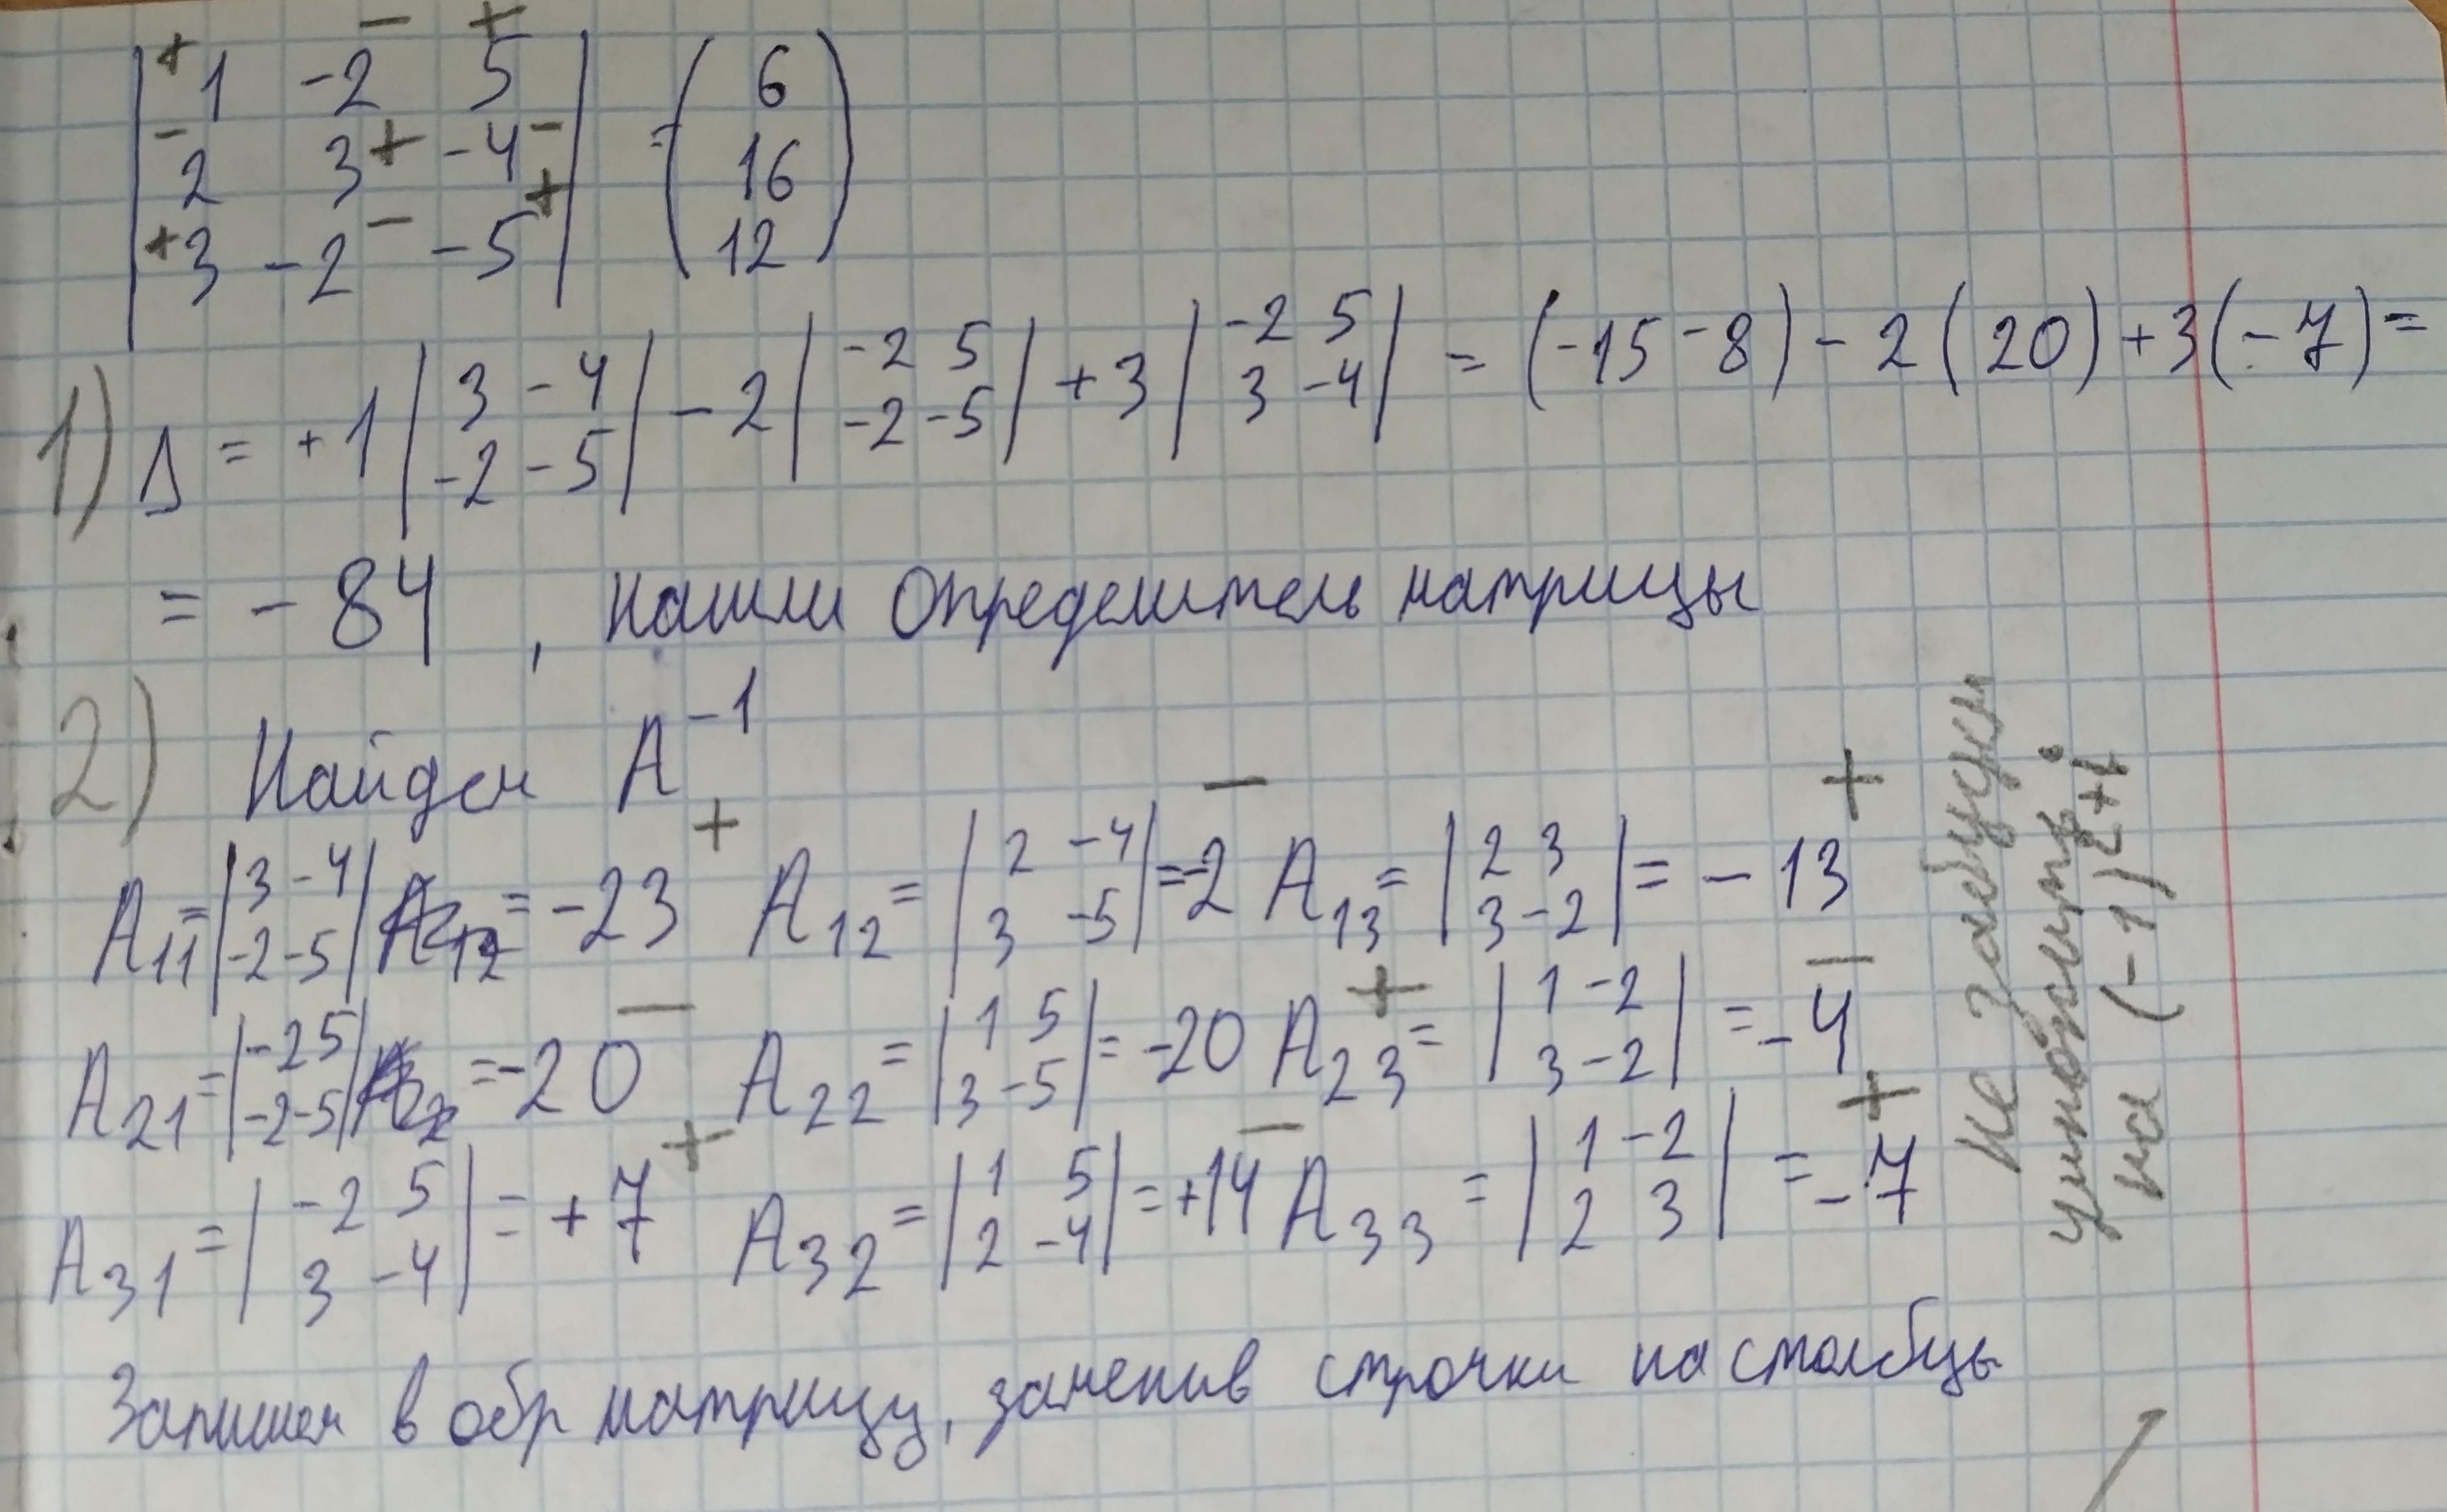 +1 -2 - 5 +
- 2 3 + -4 - = (6 16 12)
+3 -2 - -5 +
1) Δ = +1 |3 -4; -2 -5| - 2 |-2 5; -2 -5| + 3 |-2 5; 3 -4| = (-15 -8) - 2 (20) + 3 (-7) =
= -84 , нашли определитель матрицы
2) Найдем A⁻¹
A11 = |3 -4; -2 -5| = -23 + A12 = |2 -4; 3 -5| = -2 - A13 = |2 3; 3 -2| = -13 +
A21 = |-2 5; -2 -5| = -20 - A22 = |1 5; 3 -5| = -20 + A23 = |1 -2; 3 -2| = -4 -
A31 = |-2 5; 3 -4| = +7 + A32 = |1 5; 2 -4| = +14 - A33 = |1 -2; 2 3| = -7 +
Запишем в обр матрицу, заменив строчки на столбцы
Не забудем
умножить
на (-1)